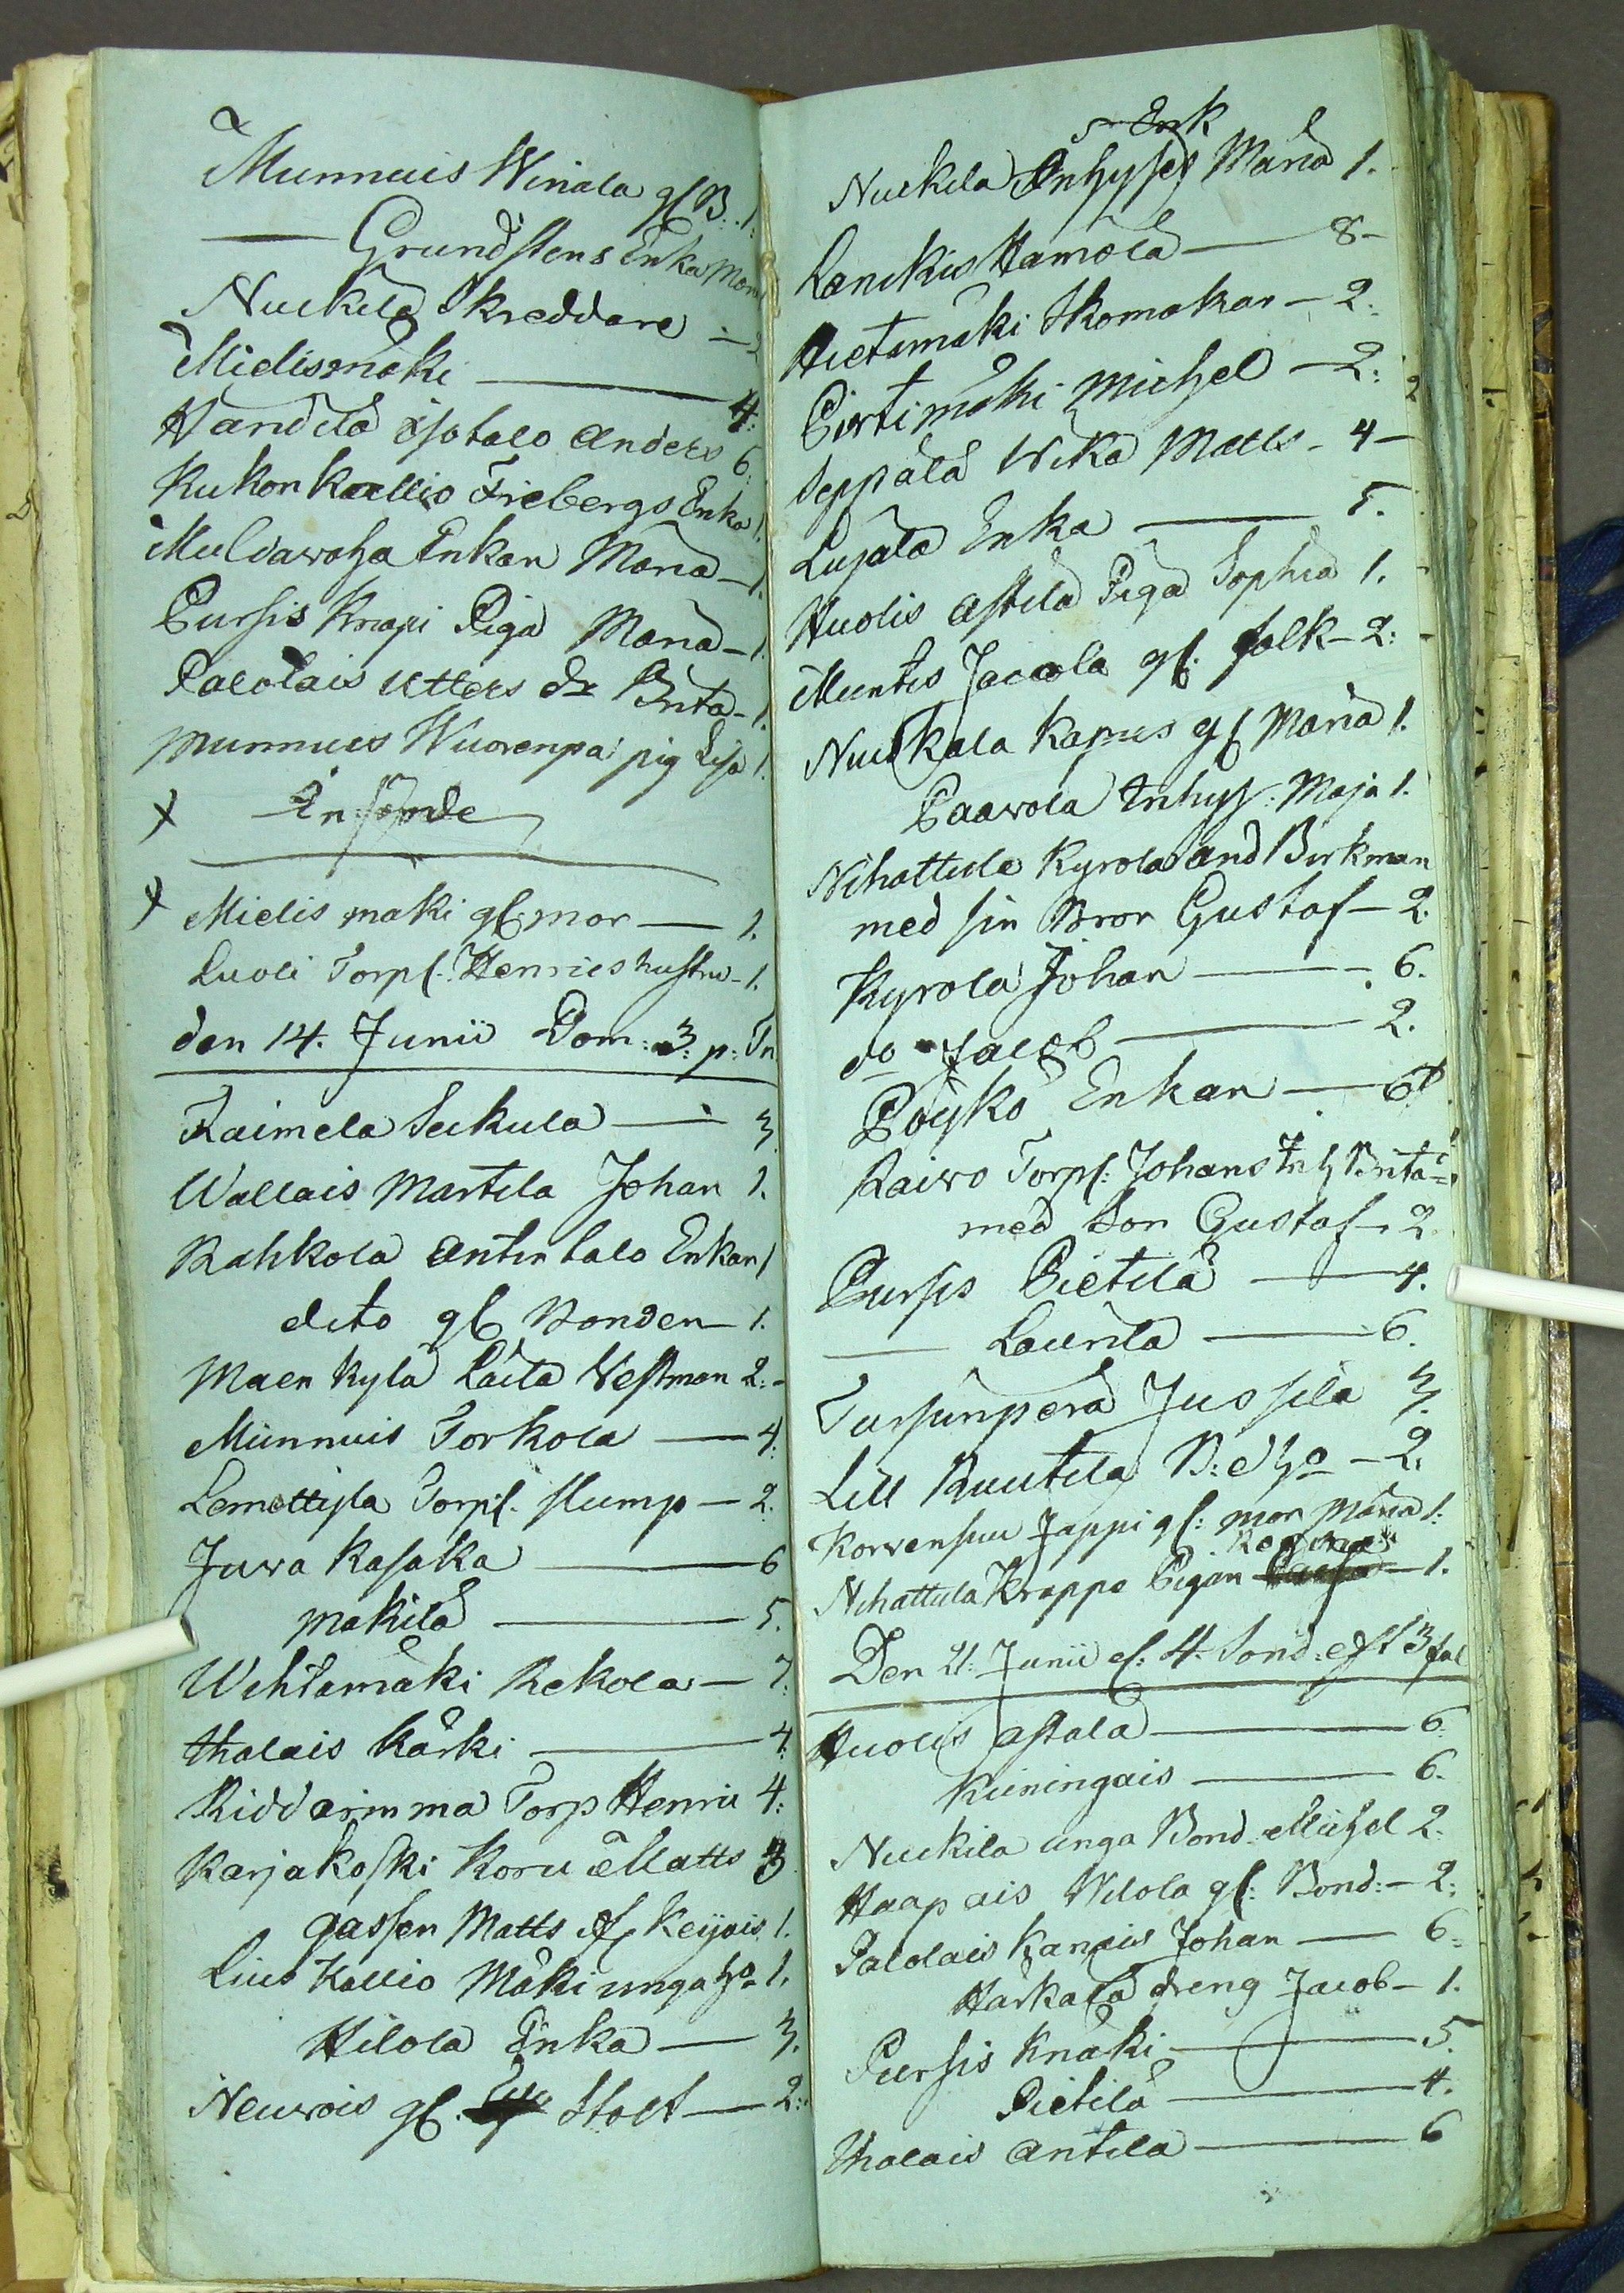 Munnuis Winala gl B: 1:
— Grundstens Enka Mar
Nuckila Skreddare — 2
Mielismäki — 4:
Handila Isotalo Anders 6:
Kukonkallio Friebergs Enka 1.
Muldawaha Enkan Maria — 1.
Pursis Knapi Piga Maria — 1.
Palolais Utters dr Brita — 1.
Munnuis Wuorenpä pig Lisa 1.
+
+ Mielis mäki gl mor — 1.
Luoli Torpf. Henrics hustru — 1.
den 14. Junii Dom: 3: p: Tn
Raimela Seikula — 3
Wallais Martila Johan 1.
Rahkola Antintalo Enkan 1
dito gl Bonden — 1.
Maenkyla Laila Westman 2: -
Munnuis Torkola — 4:
Lemettyla Torpf. Stump — 2.
Juva Kasaka — 6
Makila — 5.
Wihtamäki Rekola — 7:
thalais Kärki — 4.
Riddarimma Torp Henric 4:
Karjakoski Koru Matts 3
gassen Matts af Keijois 1.
Lius Kallio Mäki unga ho 1.
Hilola Enka — 3.
Neuvois gl. Stolt — 2:
Enk
Nuckila Inhyses Maria 1.
Lanckis Hamola — 8 -
Hietamäki Skomakar — 2:
Pirtimäki Michel — 2: 2
Seppälä Wika Matts - 4 -
Lusala Enka — 5.
Huolis Astila Piga Sophia 1.
Muntis Jacola gl. folk — 2:
Nuckala Kapus gl Maria 1.
Paavola Inhys: Maja 1.
Nihattula Kyrola And Birkman
med sin Bror Gustaf — 2.
Kyrola Johan — 6.
do Jacob — 2.
Pöyskö Enkan — 6
Raivo Torpf: Johans Inh Brita
med Son Gustaf — 2
Pursis Pietilä — 4.
— Launla — 6.
Tursunperä Jussila 3.
Lill Ruutila B: d ho — 2.
Korvensuu Jappi gl: mor Maria 1:
Regina
Nihattula Krappo Pigan — 1.
Den 21: Junii el: 4. Sond: eft 3 fal
Huolis Astala — 6.
Kuiningais — 6.
Nuckila unga Bond: Michel 2.
Haapais Wilola gl: Bond: — 2:
Palolais Kanpis Johan — 6:
Harkala dreng Jacob — 1.
Pursis Knäki — 5.
Pietilä — 4.
Thalais Antila — 6